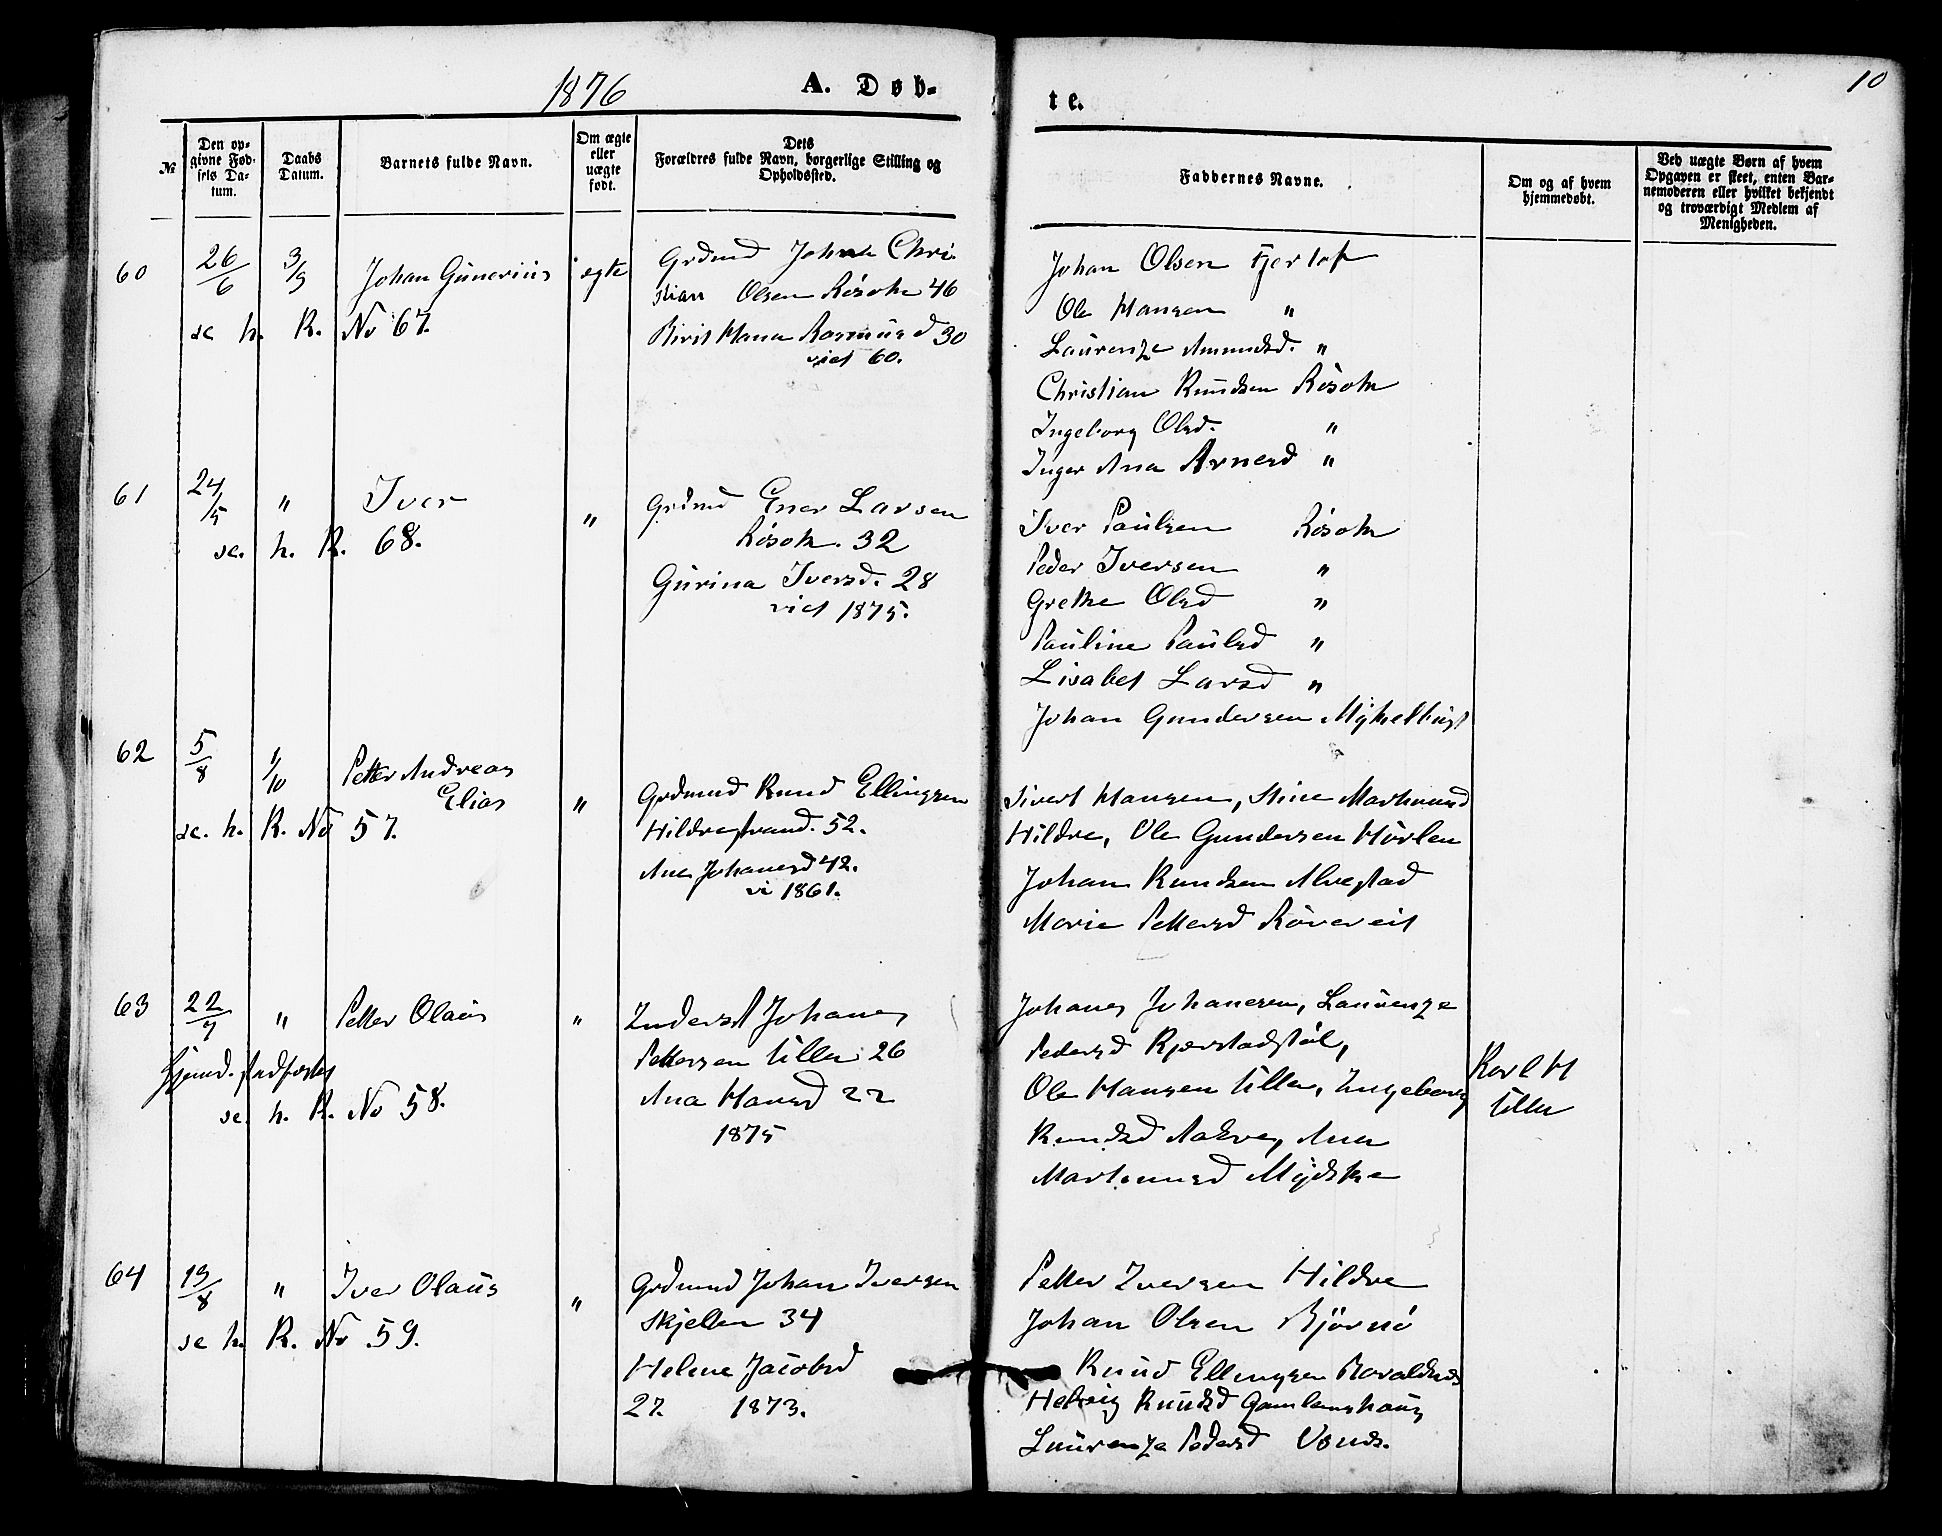 1876
A. Døb-
te.
10
№
Den op-
givne Fød-
sels Da-
tum.
Daabs
Datum.
Barnets fulde Navn.
Om ægte
eller
uægte
født.
Dets
Forældres fulde Navn, borgerlige Stilling og
Opholdssted.
Faddernes Navne.
Om og af hvem
hjemmedøbt.
Ved uægte Børn af hvem
Opgaven er skeet, enten Bar-
nemoderen eller hvilket bekjendt
og troværdigt Medlem af
Menigheden.
60
26/6
3/9
Johan Gunerius
ægte
Grdmd Johan Chri
stian Olsen Røsok 46
se h. R. No 67.
Birit Mana Rasmusd 30
viet 60.
Johan Olsen Fjertoft
Ole Hansen "
Laurenze Amundsd. "
Christian Knudsen Røsok
Ingeborg Olsd. "
Inger Ana Arnesd "
61
24/5
"
Iver
"
Grdmd Ener Larsen
Røsok. 32
se. h. R. 68.
Gurina Iversd. 28
viet 1875.
Iver Paulsen Røsok
Peder Iversen "
Grethe Olsd "
Pauline Paulsd "
Lisabet Larsd "
Johan Gundersen Myklebust
62
5/8
1/10
Petter Andreas
Elias
"
se. h. R. No 57.
Grdmand Knud Ellingsen
Hildrestrand. 52.
Ane Johanesd 42.
vi 1861.
Sivert Hansen, Stine
Hildre, Ole Gundersen
Johan Knudsen Alvestad
Marie Pettersd Røvereit
63
22/7
"
Petter Olaus
"
Inderst Johanes
Pettersen Ulla 26
Ana Hansd 22
1875
Hjemd. stadfæstes
se h. R. No 58.
Johanes Johanesen, Laurenze
Pedersd Kjerstadstøl,
Ole Hansen Ulla, Ingeborg
Knudsd Aakre, Ane
Martinusd
Karl H
Ulla
64
13/8
"
Iver Olaus
"
se h. R. No 59.
Grdmand Johan Iversen
Skjellen 34
Helene Jacobsd
27. 1873.
Petter Iversen Hildre
Johan Olsen Bjørnø
Knud Ellingsen
Helvig Knudsd
Laurenze Pedersd